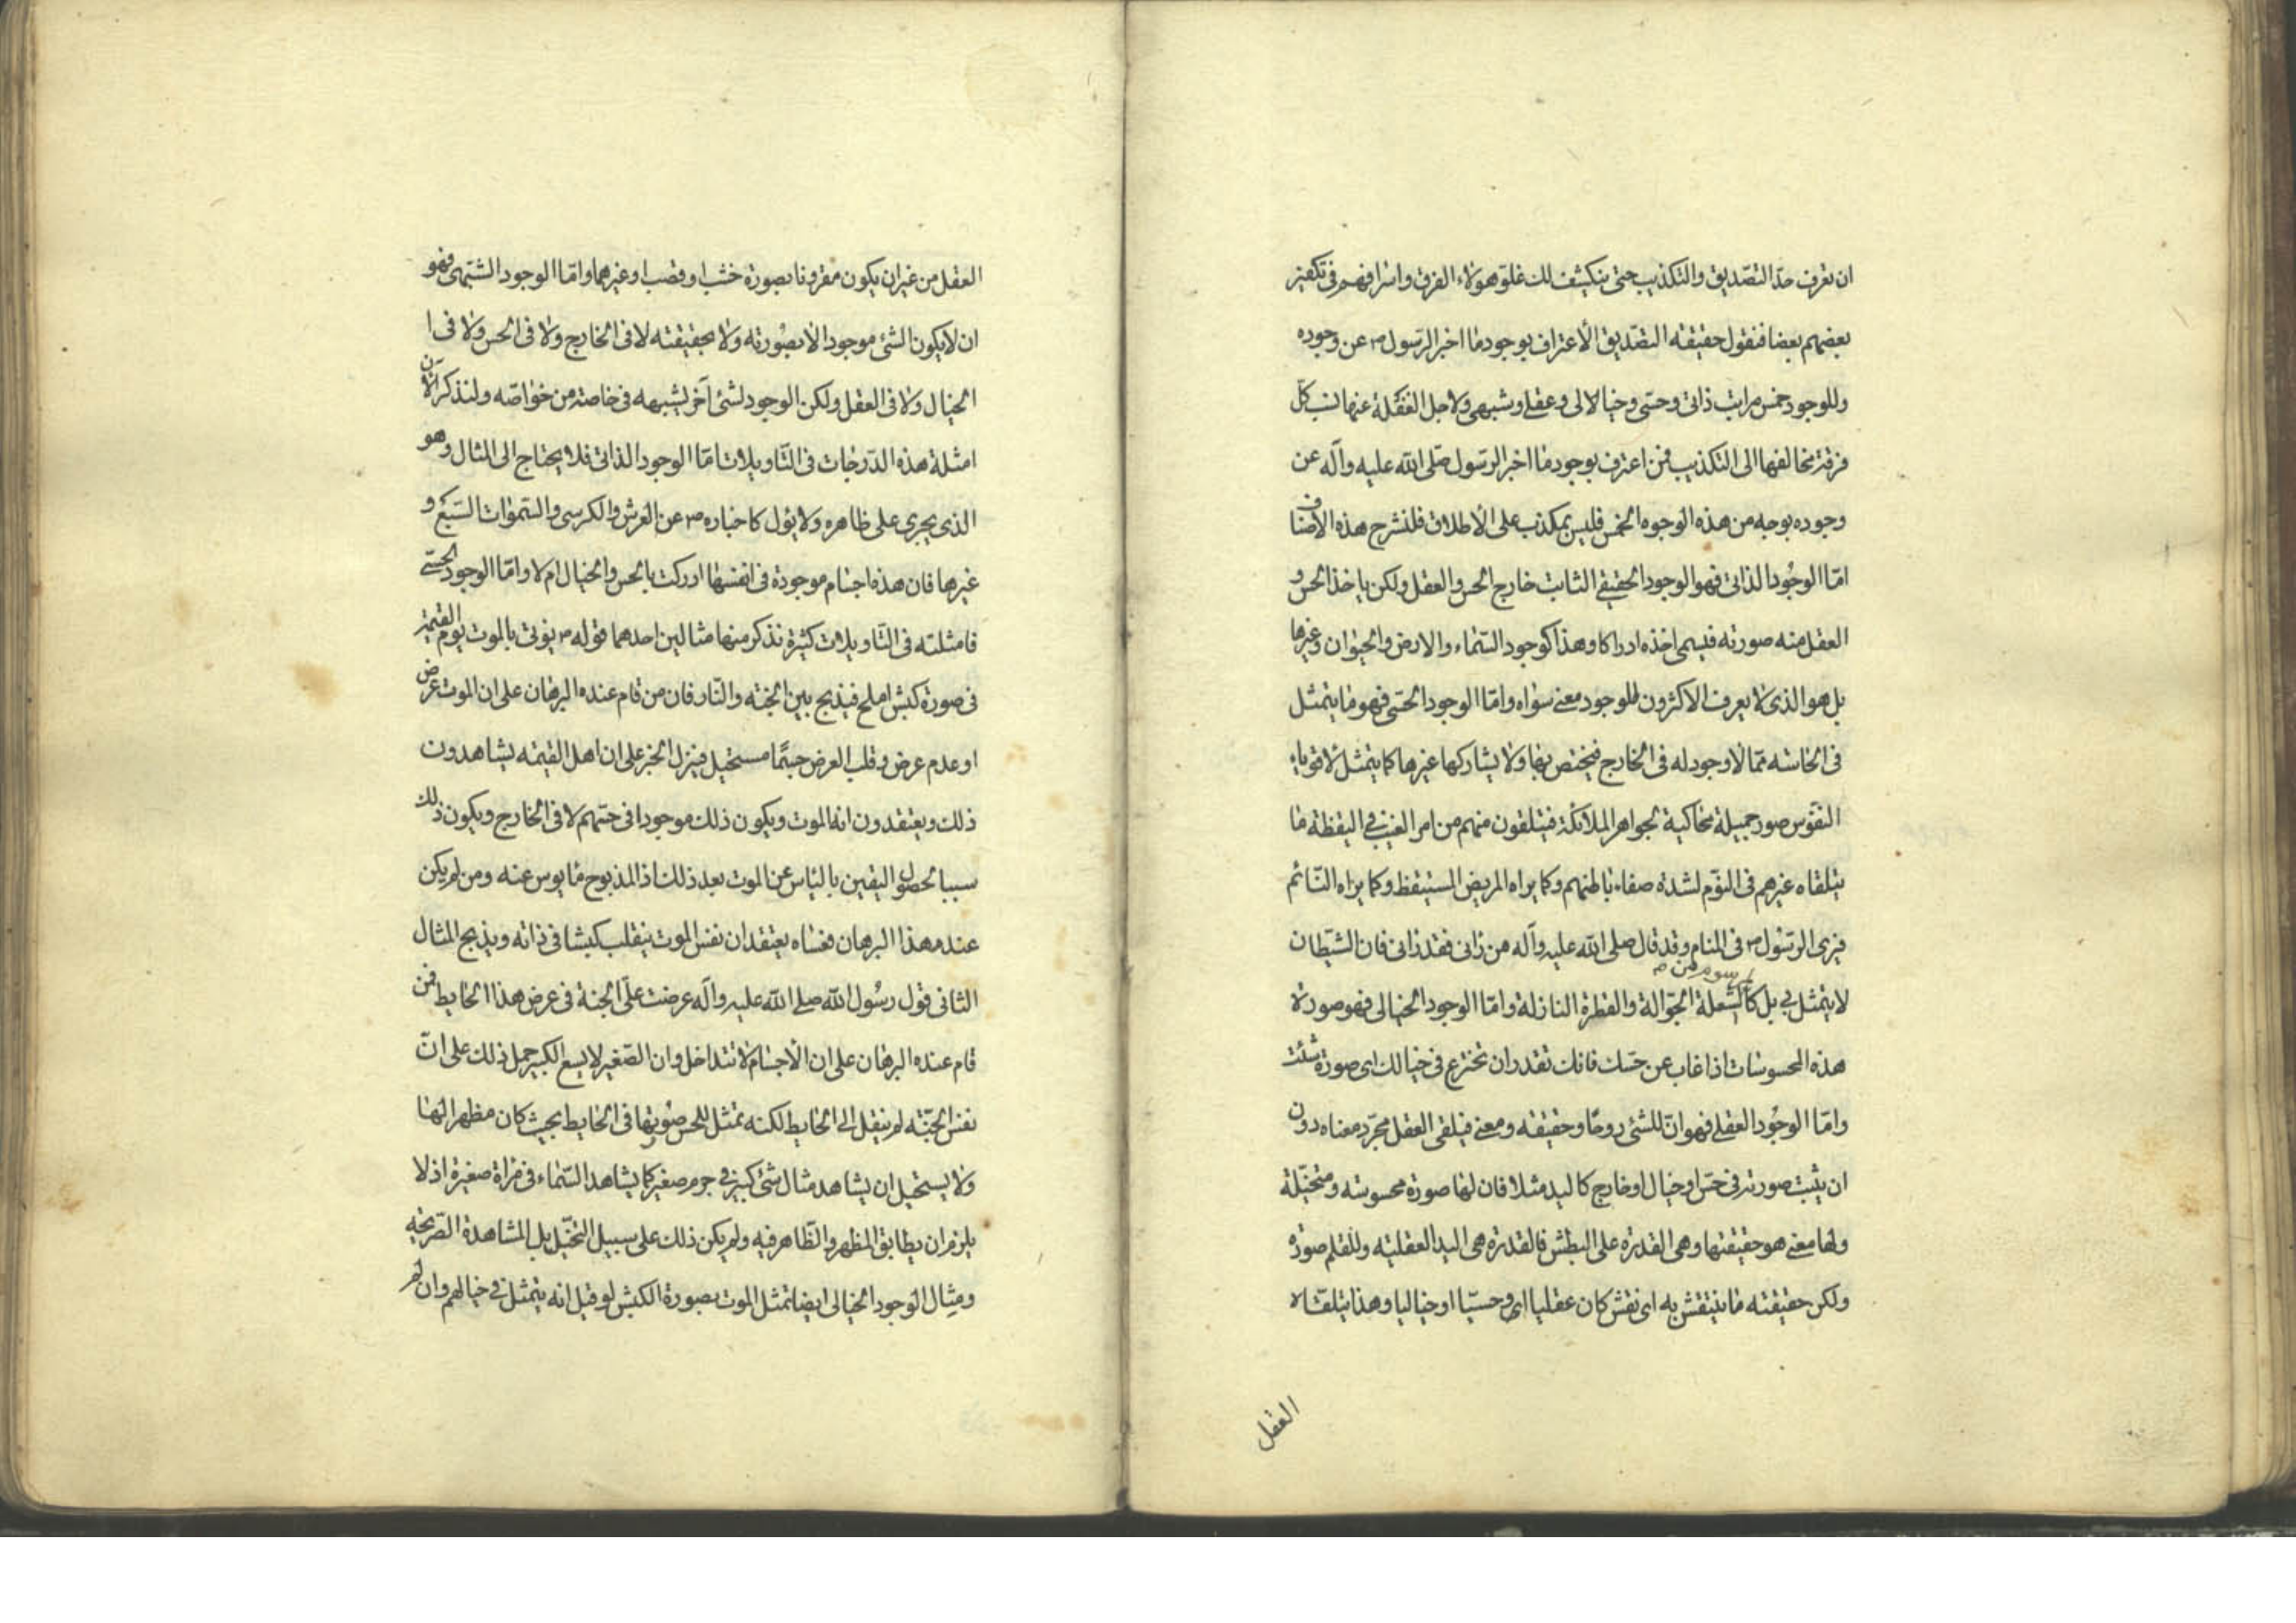 ان تعرف حدّ التصديق والتكذيب حتى ينكشف لك غلوّ هولاء الفرق واسرافهم فى تكفير
بعضهم بعضا فنقول حقيقة التصديق الاعتراف بوجود ما اخبر الرسول ص عن وجوده
وللوجود خمس مراتب ذاتى وحسّى وخيالالى وعقلے وشبهى ولاجل الغفلة عنها نسب كلّ
فرقة مخالفها الى التكذيب فمن اعترف بوجود ما اخبر الرسول صلى الله عليه وآله عن
وجوده بوجه من هذه الوجوه الخمس فليس بمكذب على الاطلاق فلنشرح هذه الاصناف
امّا الوجود الذاتى فهو الوجود الحقيقے الثابت خارج الحس والعقل ولكن ياخذ الحس و
العقل منه صورته فيسمى اخذه ادراكا وهذا كوجود السّماء والارض والحيوان وغيرها
بل هو الذى لا يعرف الاكثرون للوجود معنے سواه وامّا الوجود الحسّى فهو ما يتمثل
فى الحاسّه ممّا لا وجود له فى الخارج فيختص بها ولا يشاركها غيرها كما يتمثل لاقوياء
النفوس صور جميلة محاكية لجواهر الملائكة فيتلقون منهم من امر الغيب فے اليقظة ما
يتلقاه غيرهم فى النوم لشدة صفاء باطنهم وكما يراه المريض المستيقظ وكما يراه النّائم
فيرى الرسول ص فى المنام وقد قال صلى الله عليه وآله من رانى فقد رانى فان الشيطان
لا يتمثل بے بل كالشعلة الجوّالة والقطرة النازلة وامّا الوجود الخيالى فهو صورة
هذه المحسوسات اذا غاب عن حسّك فانك تقدر ان تخترع فى خيالك اى صورة شئت
وامّا الوجود العقلے فهو انّ للشئ روحًا وحقيقة ومعنے فيلقى العقل مجرّد معناه دون
ان يثبت صورته فى حس او خيال او خارج كاليد مثلا فان لها صورة محسوسة ومتخيّلة
ولها معنے هو حقيقتها وهى القدرة على البطش فالقدرة هى اليد العقليّه وللقلم صورة
ولكن حقيقته ما ينتقش به اى نقش كان عقليا اى وحسيّا او خياليا وهذا يتلقاه
العقل
العقل من غير ان يكون مقرونا بصورة خشب او قصب او غيرهما وامّا الوجود الشبهى فهو
ان لا يكون الشئ موجودا لا بصورته ولا بحقيقته لا فى الخارج ولا فى الحس ولا فى ا
الخيال ولا فى العقل ولكن الوجود لشئ آخر يشبهه فى خاصة من خواصّه ولنذكر الآن
امثلة هذه الدّرجات فى التّاويلات امّا الوجود الذاتى فلا يحتاج الى المثال وهو
الذى يجرى على ظاهره ولا يؤل كاخباره ص عن العرش والكرسى والسّموات السّبع و
غيرها فان هذه اجسام موجودة فى انفسها ادركت بالحس والخيال ام لا وامّا الوجود الحسّے
فامثلته فى التّاويلات كثيرة نذكر منها مثالين احدهما قوله ص يؤتى بالموت يوم القيمة
فى صورة كبش املح فيذبح بين الجنّه والنّار فان من قام عنده البرهان على ان الموت عرض
او عدم عرض وقلب العرض جسمًا مستحيل فينزل الخبر على ان اهل القيمه يشاهدون
ذلك ويعتقدون انه الموت ويكون ذلك موجودا فى حسّهم لا فى الخارج ويكون ذلك
سببا لحصول اليقين بالياس عن الموت بعد ذلك اذ المذبوح مايوس عنه ومن لم يكن
عنده هذا البرهان فعساه يعتقد ان نفس الموت ينقلب كبشا فى ذاته ويذبح المثال
الثانى قول رسول الله صلے الله عليه وآله عرضت علىّ الجنة فى عرض هذا الحايط فمن
قام عنده البرهان على ان الاجسام لا تتداخل وان الصّغير لا يسع الكبير حمل ذلك على انّ
نفس الجنّه لم ينقل الى الحايط لكنه تمثل للحس صورتها فى الحايط بحيث كان مظهرا لها
ولا يستحيل ان يشاهد مثال شئ كبير فے جرم صغير كما يشاهد السّماء فى مرآة صغيرة اذ لا
يلزم ان يطابق المظهر والظّاهر فيه ولم يكن ذلك على سبيل التخيّل بل المشاهدة الصّريحه
ومثال الوجود الخيالى ايضا تمثل الموت بصورة الكبش لو قيل انه يتمثل فے خيالهم وان لم